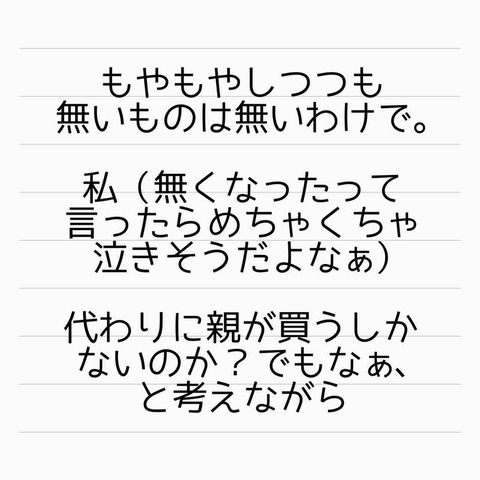 もやもやしつつも
無いものは無いわけで。
私（無くなったって
言ったらめちゃくちゃ
泣きそうだよなぁ）
代わりに親が買うしか
ないのか？でもなぁ、
と考えながら